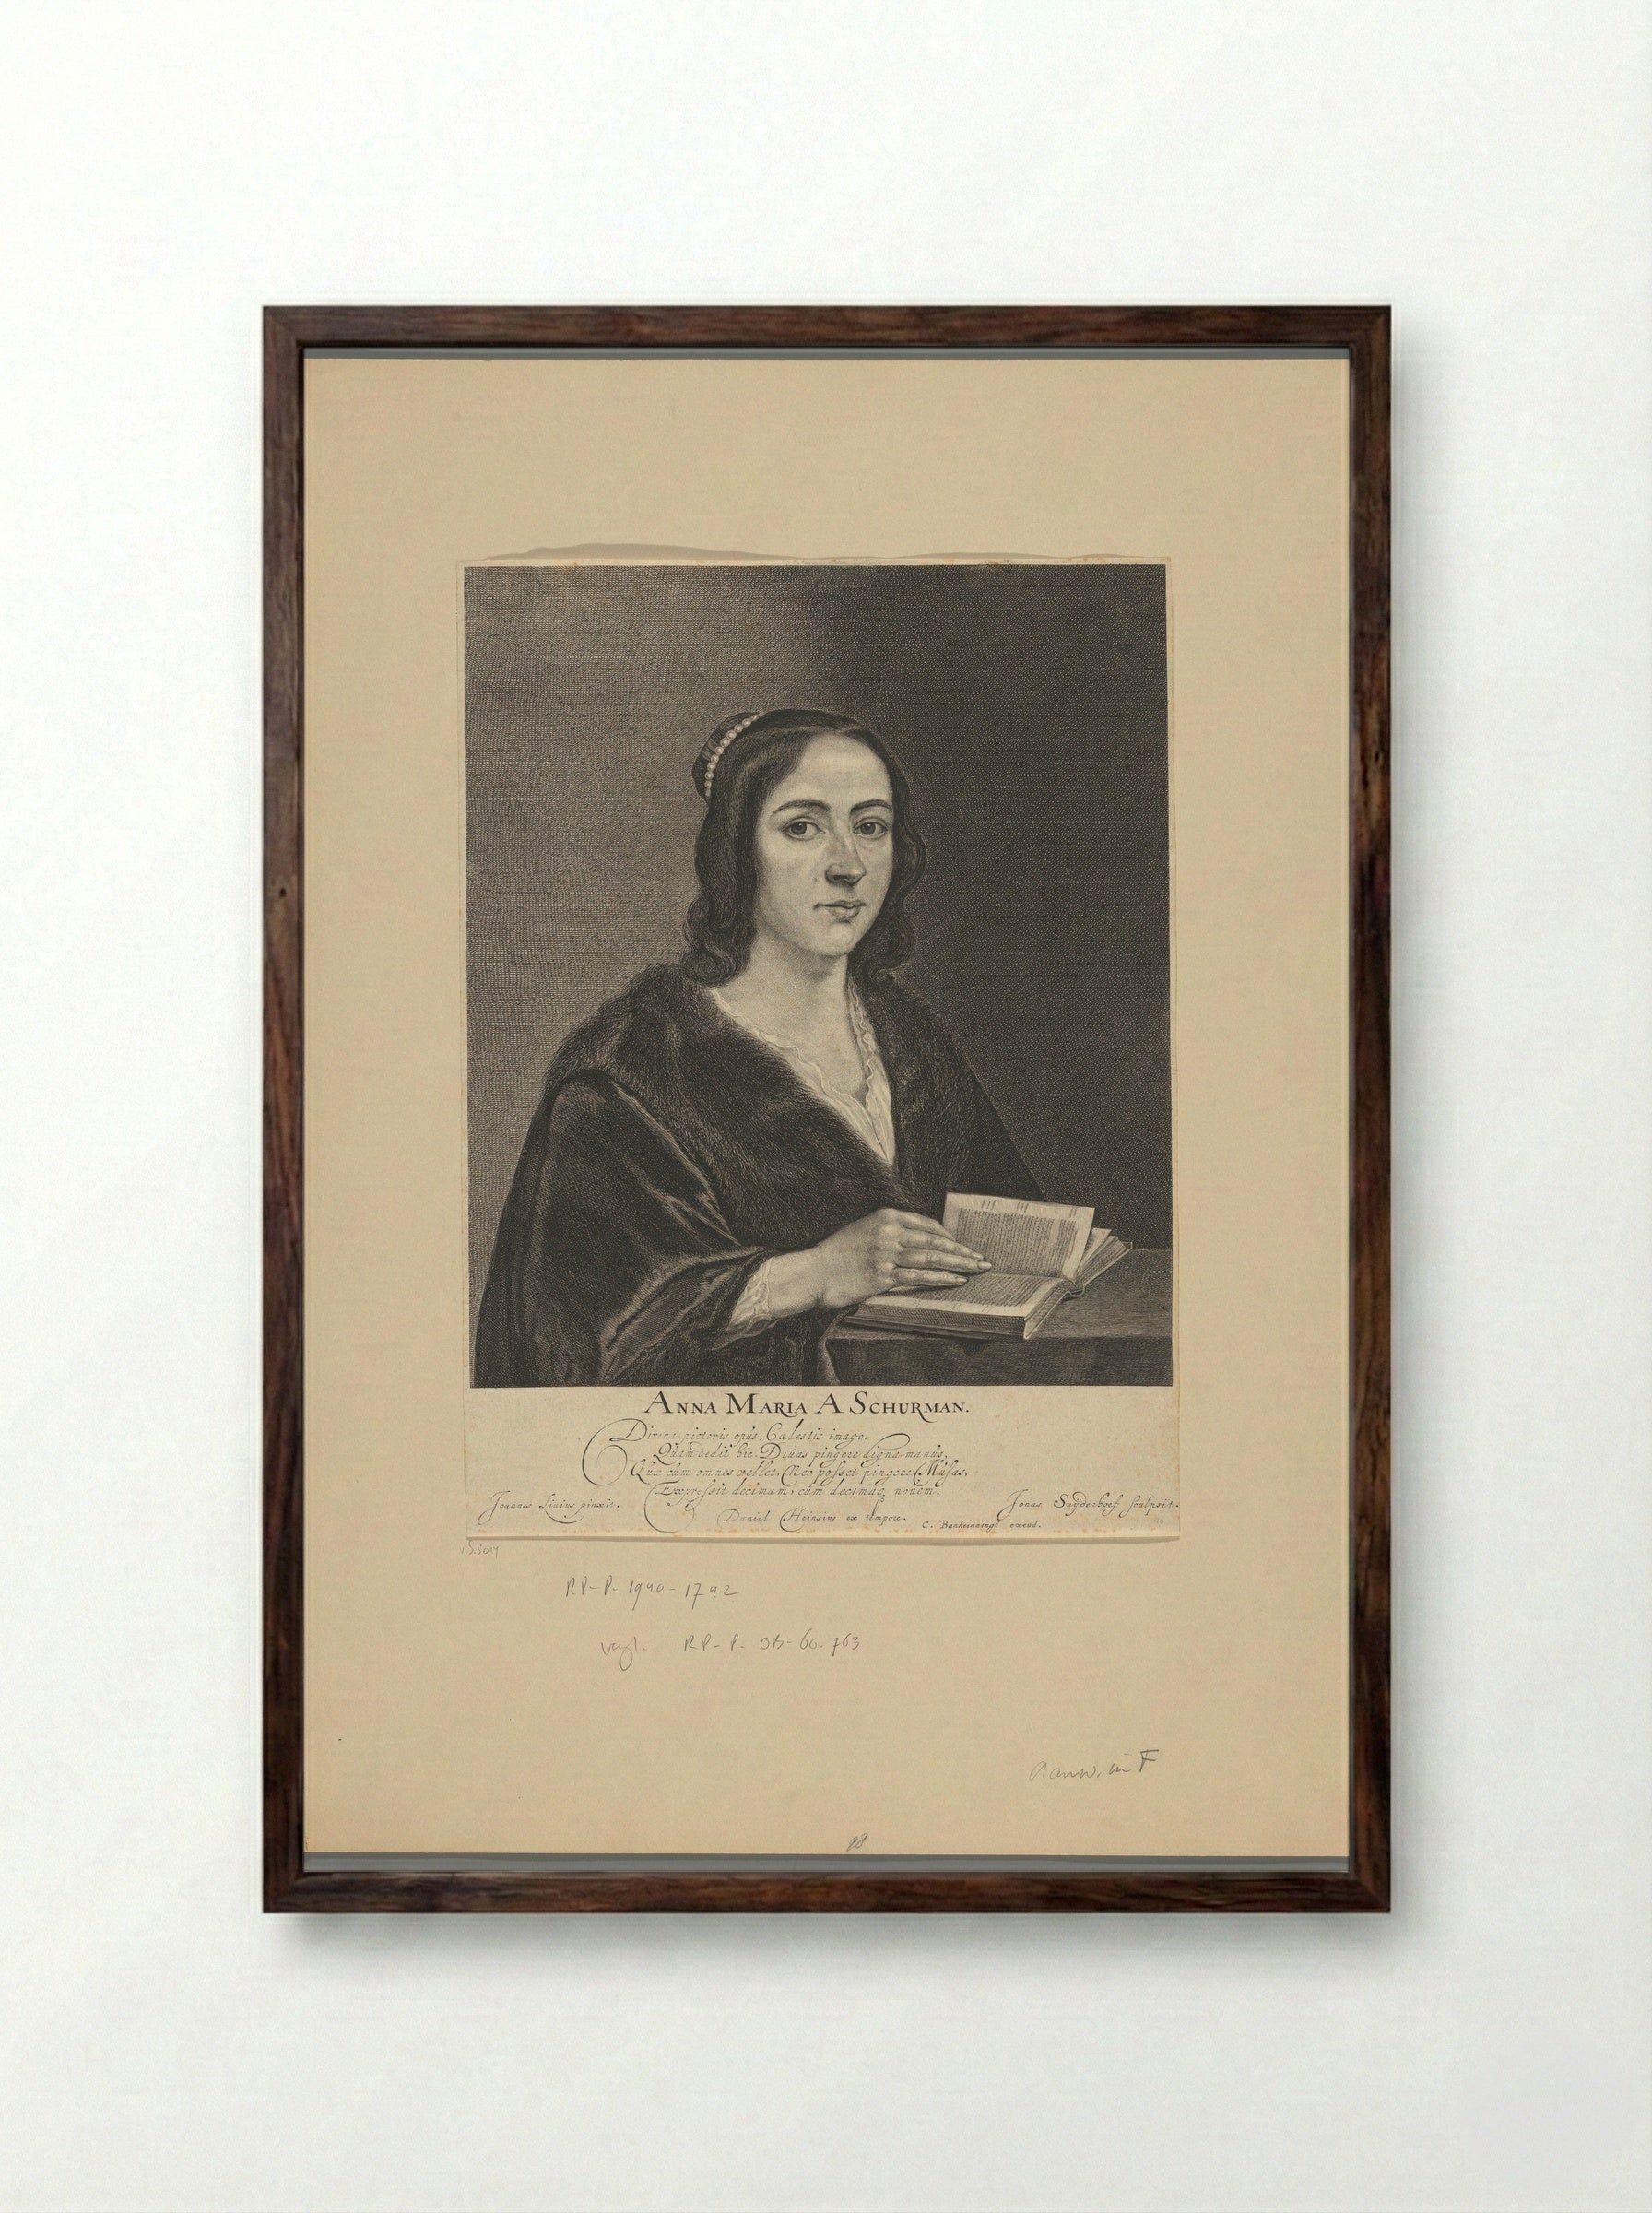 ANNA MARIA A SCHURMAN.
Divini pictoris opus, Cælestis imago,
Quam dedit hic Divas pingere digna manus.
Quæ cum omnes vellet, Nec posset pingere Musas,
Expressit decimam, cum decimaq novem.
Joannes Livius pinxit.
Jonas Suyderhoef sculpsit.
Daniel Heinsius ex tempore.
C. Banheinningh excud.
RP-P-1940-1742
vergl. RP-P-OB-60.763
aanw. in F
98